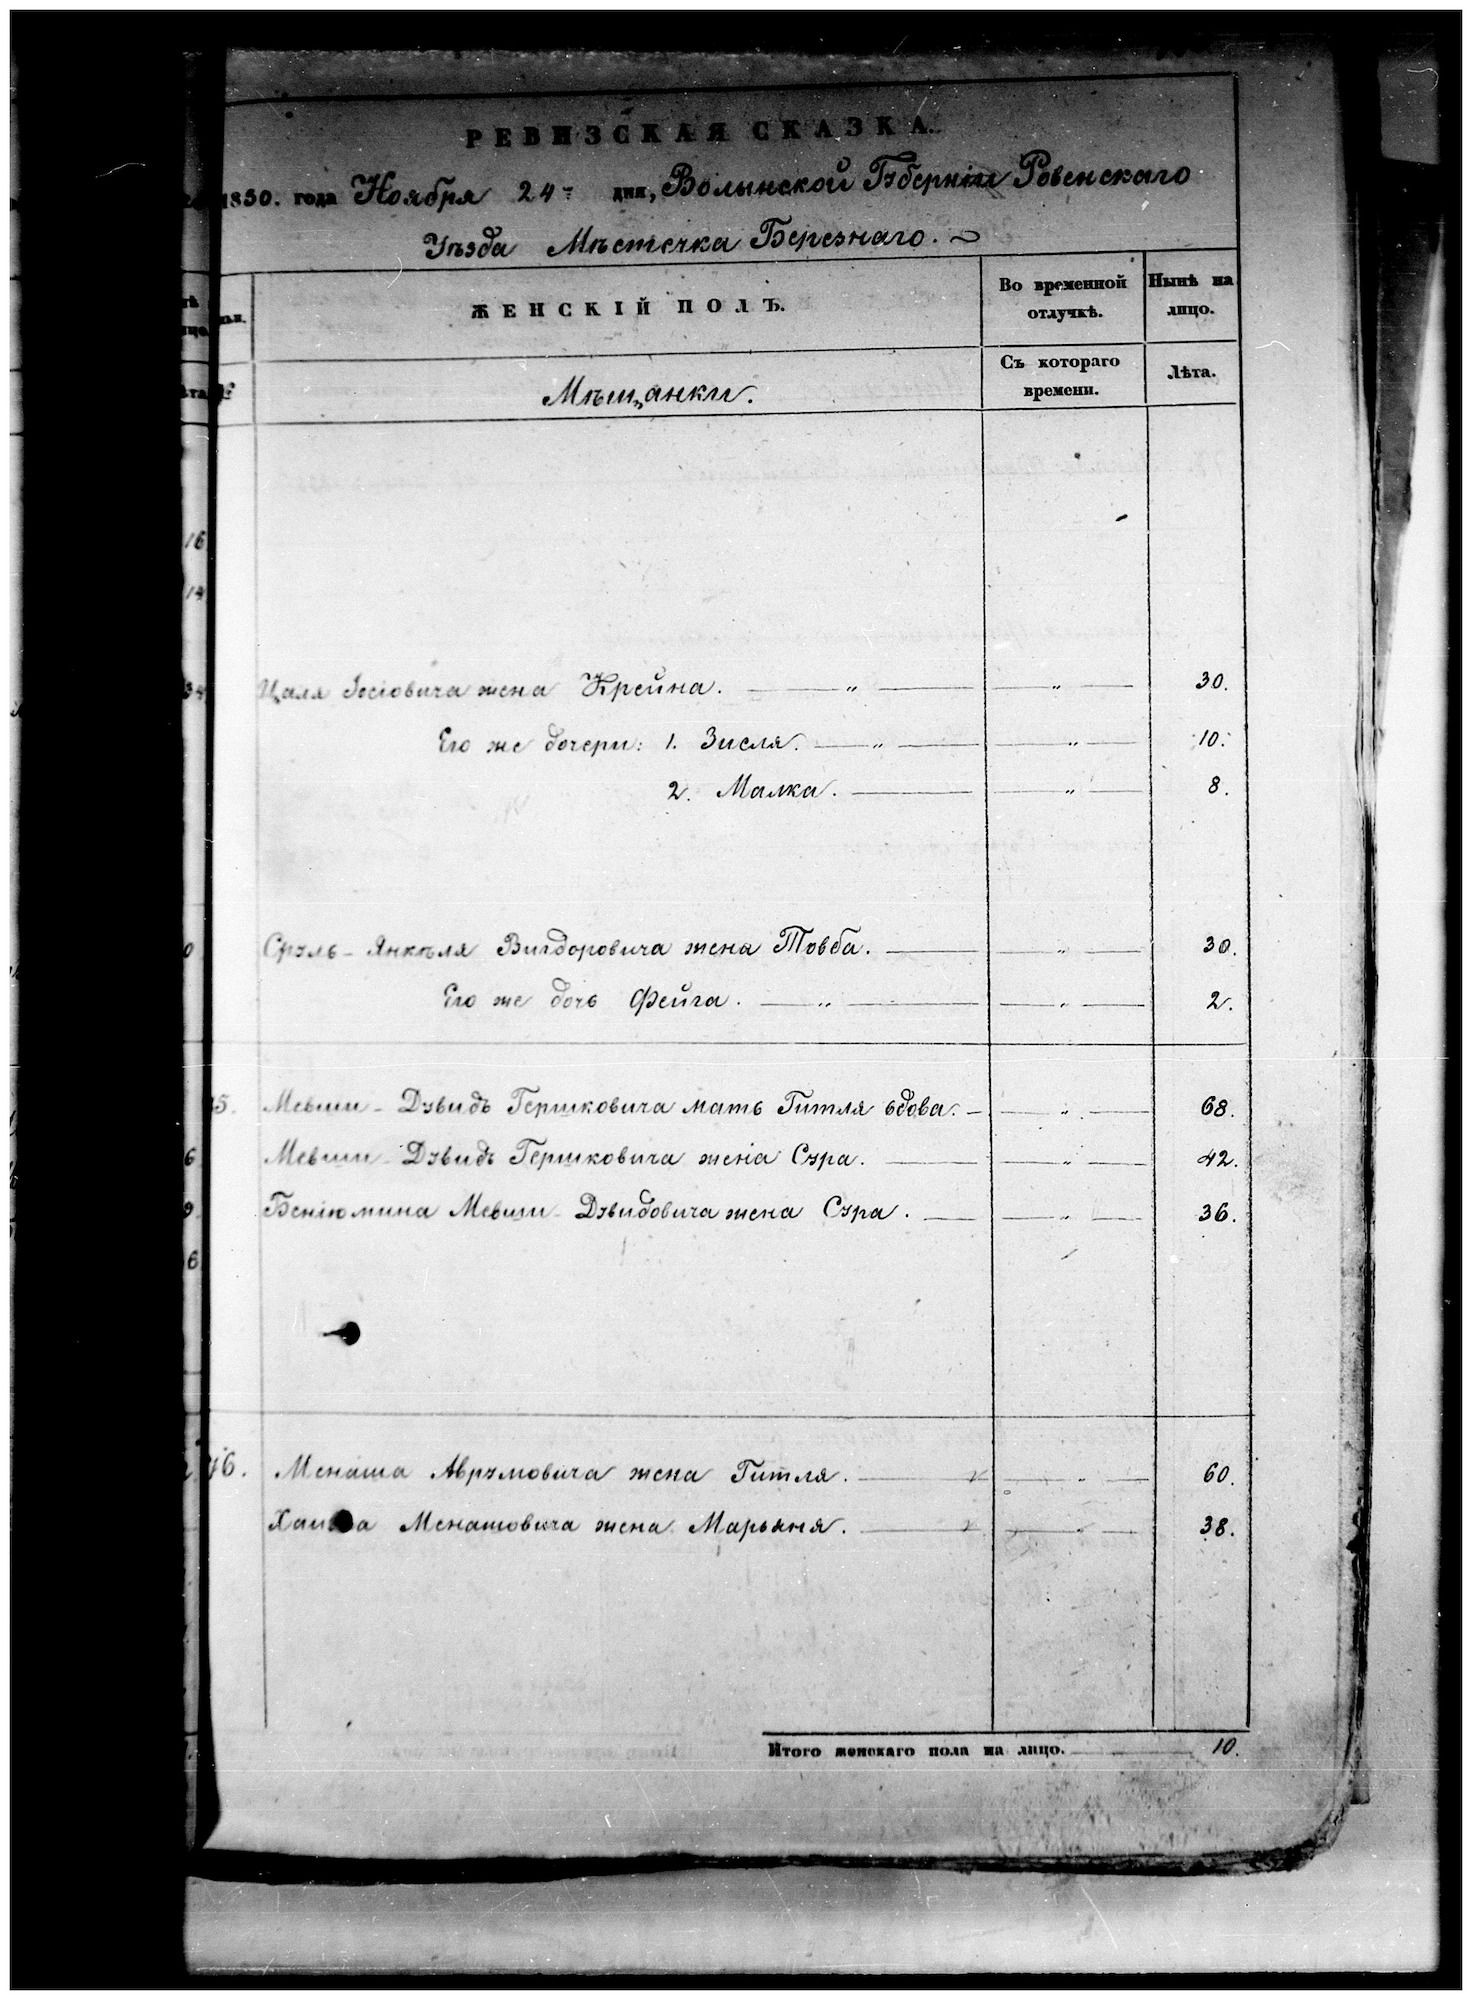 РЕВИЗСКАЯ СКАЗКА.
1850. года Ноября 24 дня, Волынской Губерніи Ровенскаго
Уѣзда Мѣстечка Березнаго.
ЖЕНСКІЙ ПОЛЪ.
Во временной отлучкѣ.
Нынѣ на лицо.
Мѣщанки.
Съ котораго времени.
Лѣта.
16
14
34
Цаля Іосіовича жена Крейна. — „ — — „ — 30.
Его же дочери: 1. Зисля. — „ — — „ — 10.
2. Малка. — — „ — 8.
0
Сруль-Янкеля Вигдоровича жена Товба. — — „ — 30.
Его же дочь Фейга. — „ — — „ — 2.
5. Мевши-Дувидъ Гершковича мать Гитля вдова. — — „ — 68.
6 Мевши-Дувидъ Гершковича жена Сура. — — „ — 42.
9 Беніюмина Мевши-Дувидовича жена Сура. — — „ — 36.
6
6. Менаша Аврумовича жена Гитля. — — „ — 60.
Менашовича жена Марьяня. — — „ — 38.
Итого женскаго пола на лицо. — 10.